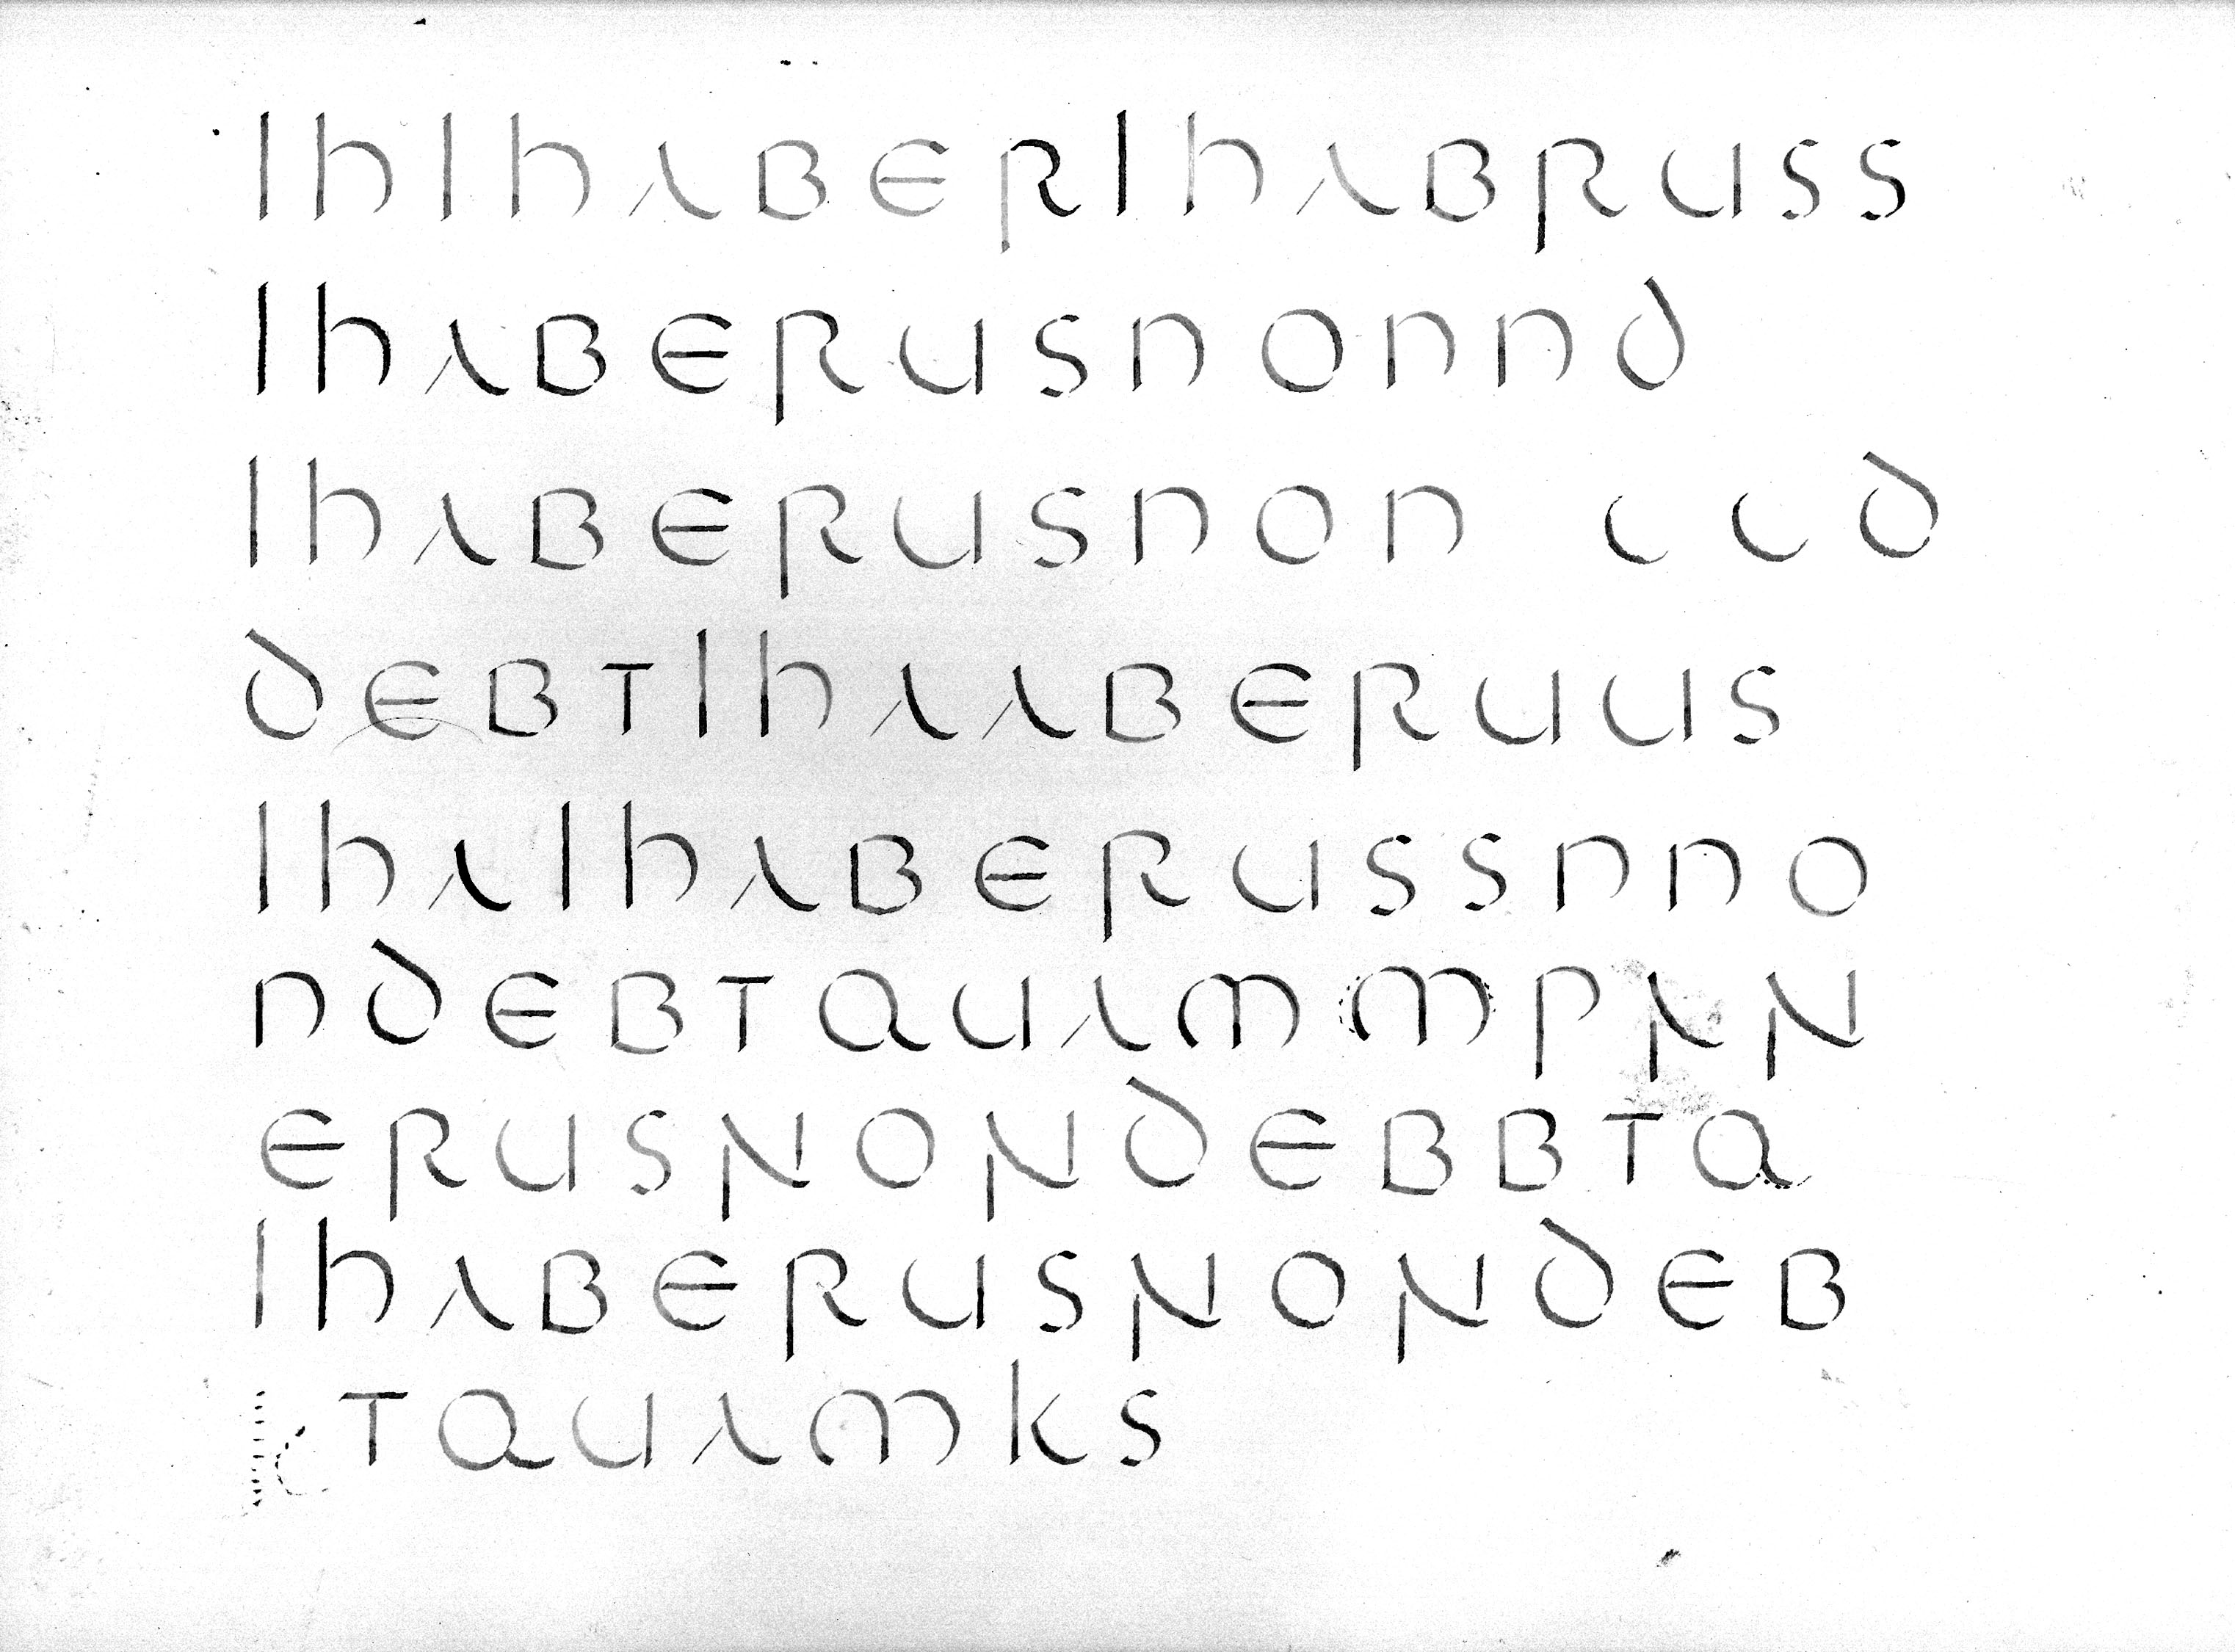 lhlhaBERlhaBRUSS
lhaBERUSnonnd
lhaBERUSnon ccd
dEBTlhaaBERUUS
lhalhaBERUSSnno
ndEBTQUammPNN
ERUSNONdEBBTQ
lhaBERUSNONdEB
TQUamkS